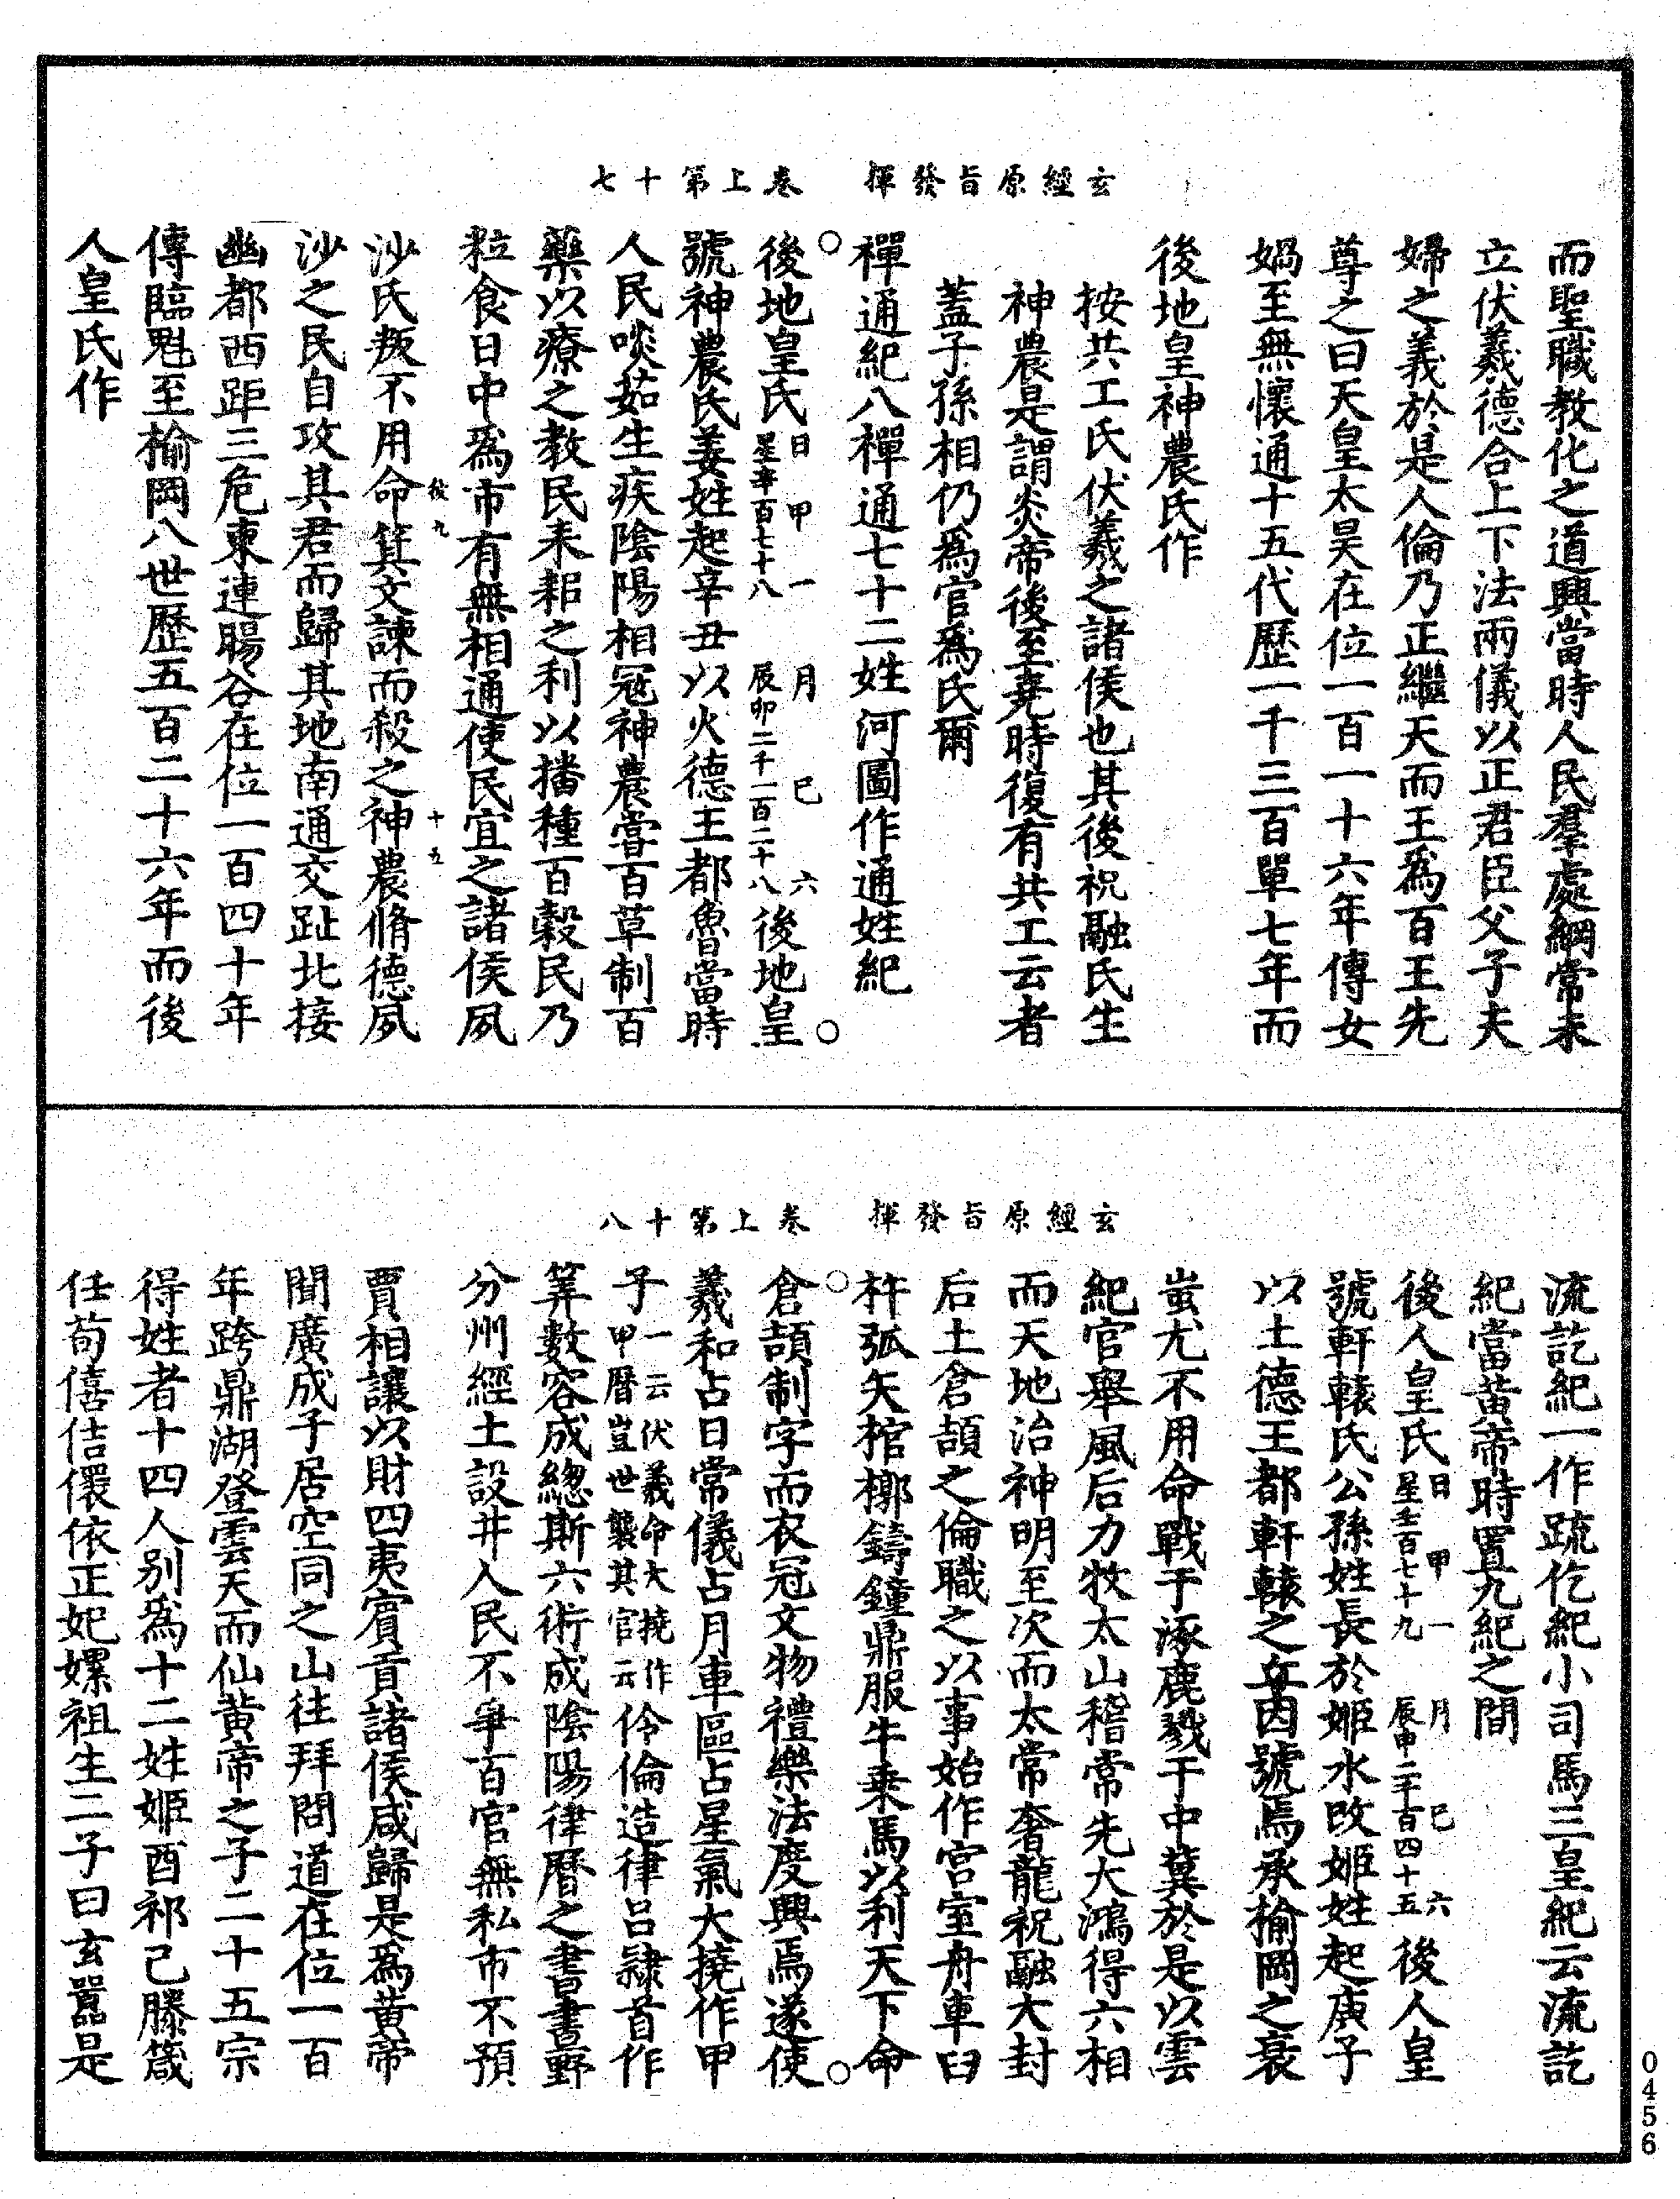 玄經原旨發揮　卷上第十七
而聖職教化之道興當時人民羣處綱常未
立伏羲德合上下法兩儀以正君臣父子夫
婦之義於是人倫乃正繼天而王為百王先
尊之曰天皇太昊在位一百一十六年傳女
媧至無懷通十五代歷一千三百單七年而
後地皇神農氏作
按共工氏伏羲之諸侯也其後祝融氏生
神農是謂炎帝後至堯時復有共工云者
蓋子孫相仍為官為氏爾
禪通紀八禪通七十二姓河圖作通姓紀
後地皇氏日甲一星辛百七十八月巳六辰卯二千一百二十八後地皇
號神農氏姜姓起辛丑以火德王都魯當時
人民啖茹生疾陰陽相冦神農嘗百草制百
藥以療之教民耒耜之利以播種百穀民乃
粒食日中為市有無相通使民宜之諸侯夙
沙氏叛不用命箕文諫而殺之神農脩德夙
後九　十五
沙之民自攻其君而歸其地南通交趾北接
幽都西距三危東連暘谷在位一百四十年
傳臨魁至榆岡八世歷五百二十六年而後
人皇氏作
玄經原旨發揮　卷上第十八
流訖紀一作䟽仡紀小司馬三皇紀云流訖
紀當黃帝時置九紀之間
後人皇氏日甲一星壬百七十九月巳六辰申二千百四十五後人皇
號軒轅氏公孫姓長於姬水改姬姓起庚子
以土德王都軒轅之丘因號焉承榆岡之衰
蚩尤不用命戰于涿鹿戮于中冀於是以雲
紀官舉風后力牧太山稽常先大鴻得六相
而天地治神明至次而太常奢龍祝融大封
后土倉頡之倫職之以事始作宮室舟車臼
杵弧矢棺槨鑄鐘鼎服牛乗馬以利天下命
倉頡制字而衣冠文物禮樂法度興焉遂使
羲和占日常儀占月車區占星氣大撓作甲
子一云伏羲命大撓作甲曆豈世襲其官云伶倫造律呂隸首作
筭數容成總斯六術成陰陽律曆之書畫野
分州經土設井人民不爭百官無私市不預
賈相讓以財四夷賓貢諸侯咸歸是為黃帝
聞廣成子居空同之山往拜問道在位一百
年跨鼎湖登雲天而仙黃帝之子二十五宗
得姓者十四人别為十二姓姬酉祁己滕箴
任荀僖佶儇依正妃嫘祖生二子曰玄囂是
0456